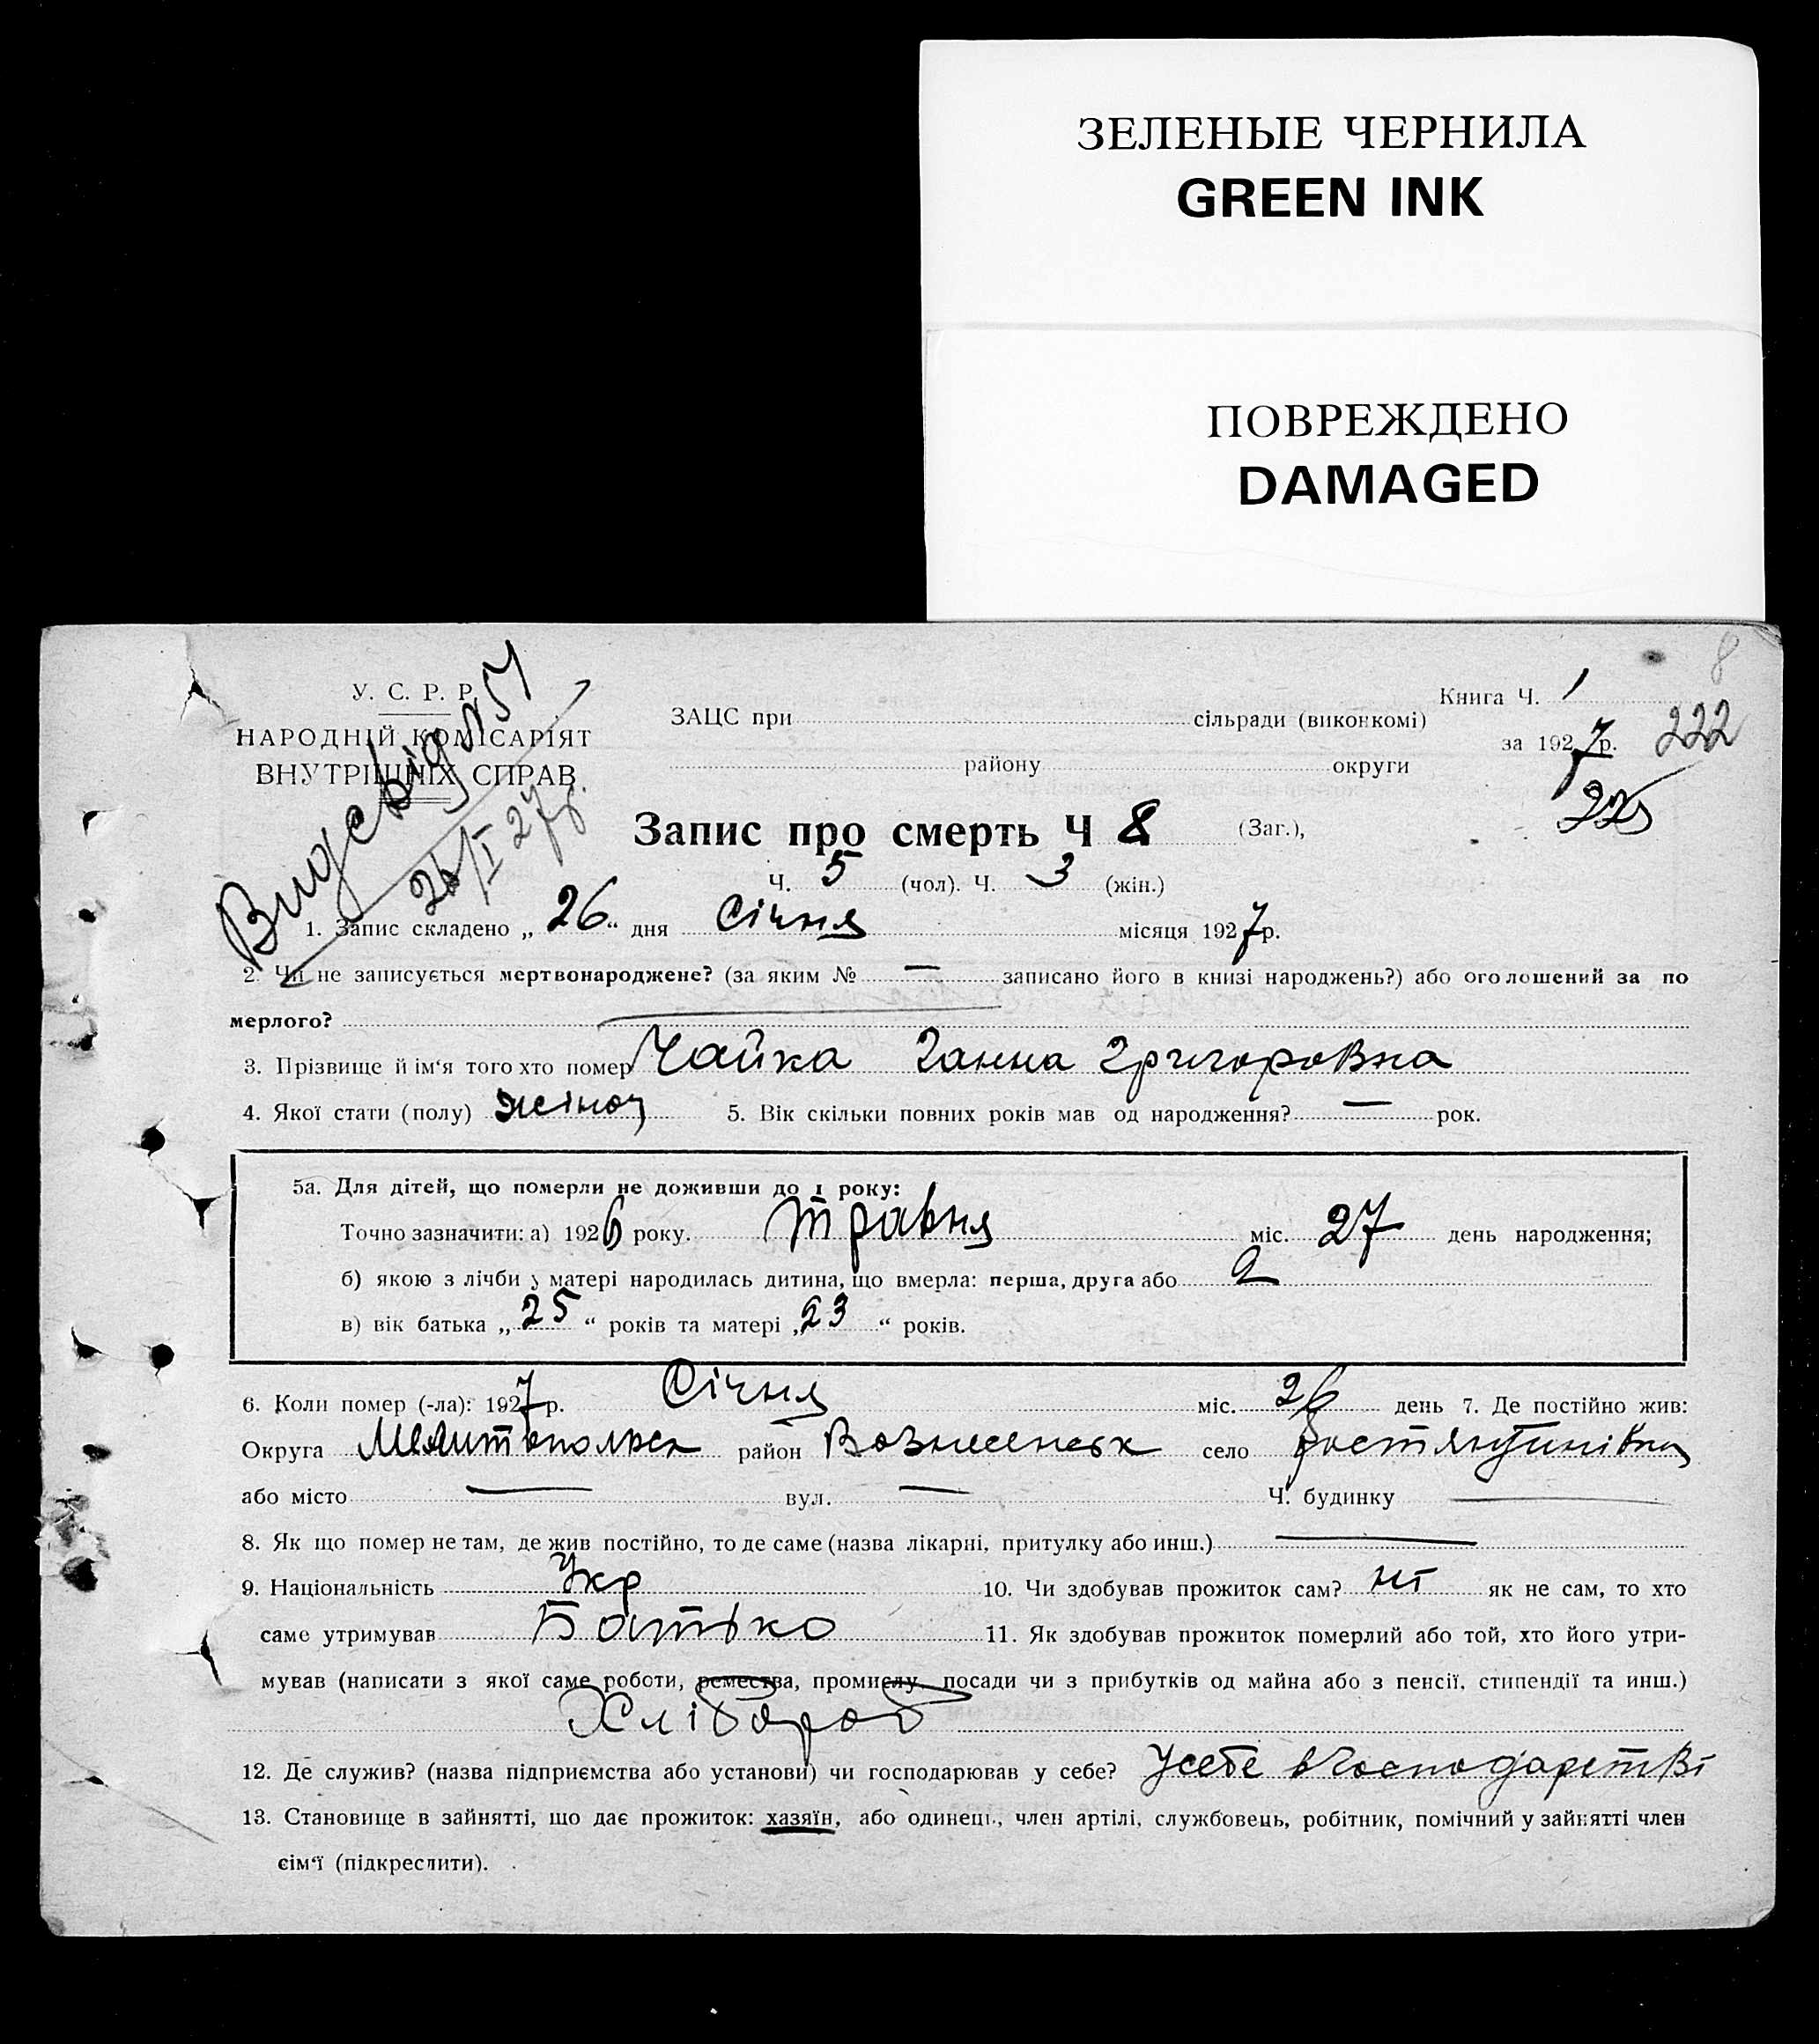 ЗЕЛЕНЫЕ ЧЕРНИЛА
GREEN INK
ПОВРЕЖДЕНО
DAMAGED
8
У. С. Р. Р.
НАРОДНІЙ КОМІСАРІЯТ
ВНУТРІШНІХ СПРАВ
26/I 27 р.
ЗАЦС при сільради (виконкомі)
району округи
Книга Ч. 1
за 1927 р. 222
Запис про смерть Ч 8 (Заг.),
Ч. 5 (чол). Ч. 3 (жін.)
1. Запис складено „ 26 “ дня Січня місяця 1927 р.
2. Чи не записується мертвонароджене? (за яким № — записано його в книзі народжень?) або оголошений за по
мерлого?
3. Прізвище й ім'я того хто помер Чайка Ганна Григоровна
4. Якої стати (полу) жіноч 5. Вік скільки повних років мав од народження? — рок.
5а. Для дітей, що померли не доживши до 1 року:
Точно зазначити: а) 1926 року. травня міс. 27 день народження;
б) якою з лічби у матері народилась дитина, що вмерла: перша, друга або 2
в) вік батька „ 25 “ років та матері „ 23 “ років.
6. Коли помер (-ла): 1927 р. Січня міс. 26 день 7. Де постійно жив:
Округа Мелитопольск район Вознесенськ село
або місто — вул. — Ч. будинку —
8. Як що помер не там, де жив постійно, то де саме (назва лікарні, притулку або инш.) —
9. Національність Укр 10. Чи здобував прожиток сам? ні як не сам, то хто
саме утримував Батько 11. Як здобував прожиток померлий або той, хто його утри-
мував (написати з якої саме роботи, ремества, промислу, посади чи з прибутків од майна або з пенсії, стипендії та инш.)
Хлібороб
12. Де служив? (назва підприємства або установи) чи господарював у себе? У себе в господарстві
13. Становище в зайнятті, що дає прожиток: хазяїн, або одинець, член артілі, службовець, робітник, помічний у зайнятті член
сім'ї (підкреслити).